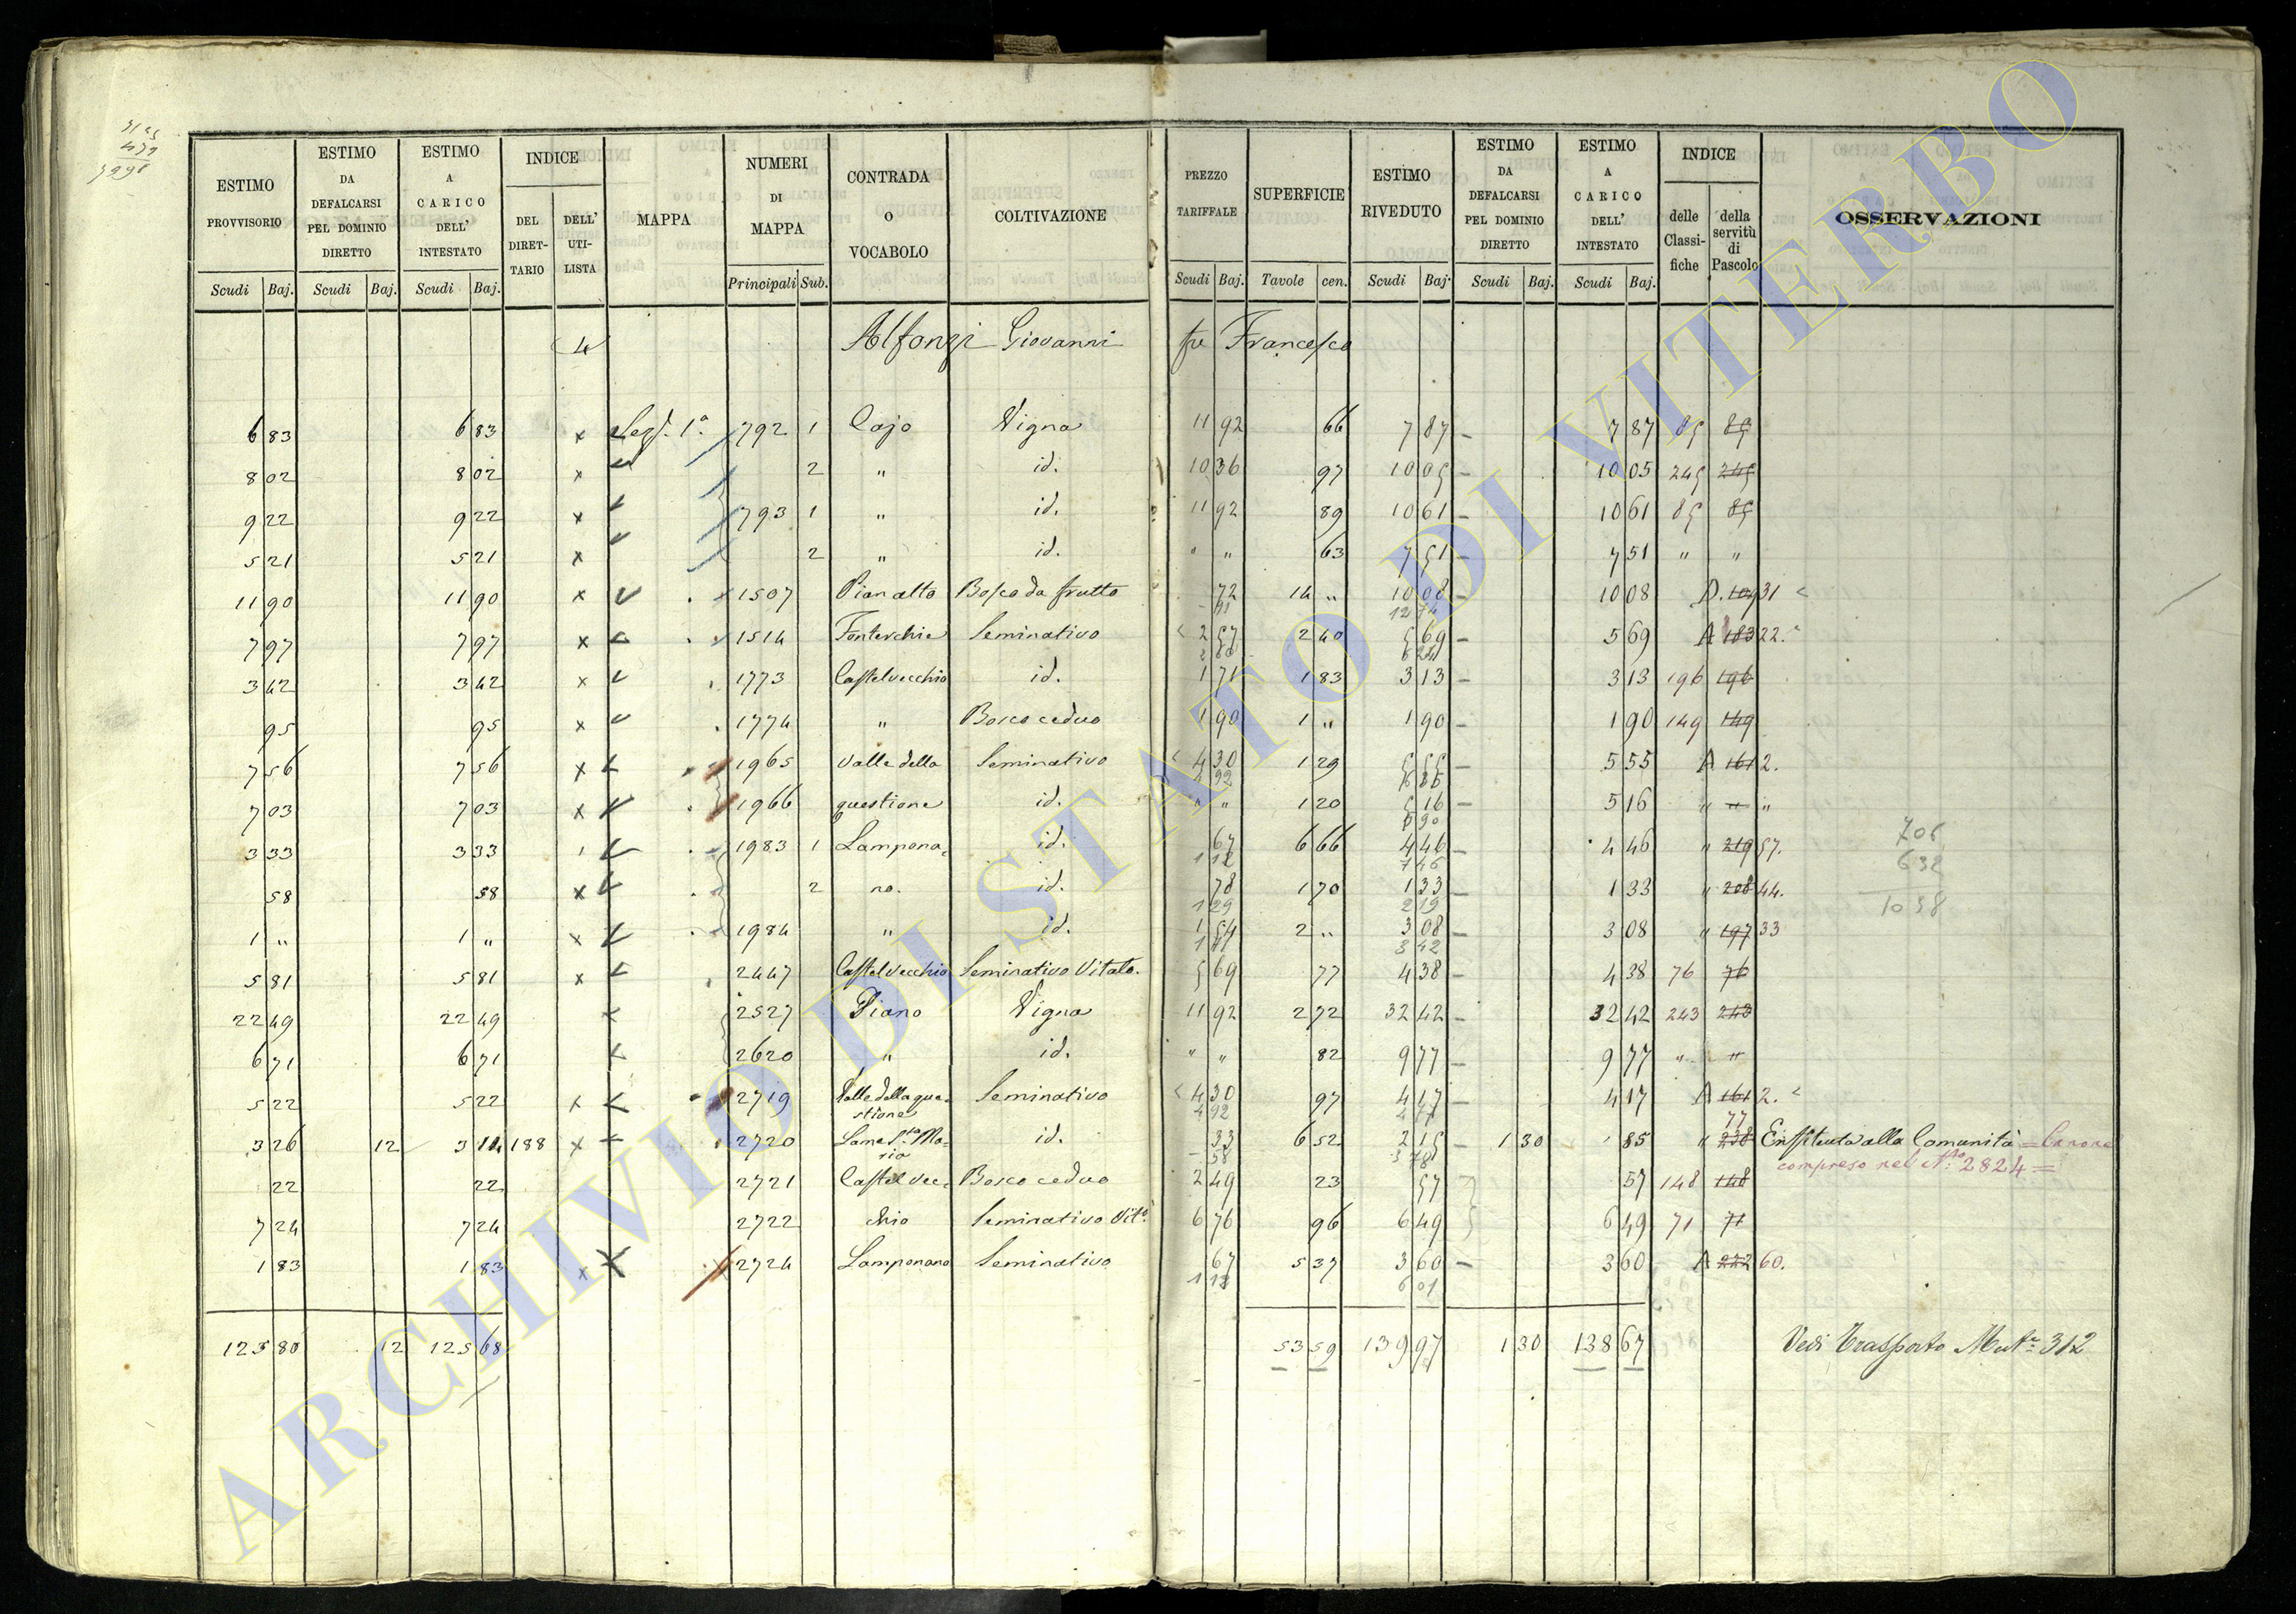 ESTIMO PROVVISORIO | ESTIMO DA DEFALCARSI PEL DOMINIO DIRETTO | ESTIMO A CARICO DELL' INTESTATO | INDICE | MAPPA | NUMERI DI MAPPA | CONTRADA O VOCABOLO | COLTIVAZIONE | PREZZO TARIFFALE | SUPERFICIE | ESTIMO RIVEDUTO | ESTIMO DA DEFALCARSI PEL DOMINIO DIRETTO | ESTIMO A CARICO DELL' INTESTATO | INDICE | OSSERVAZIONI
DEL DIRET-TARIO | DELL' UTI-LISTA | delle Classi-fiche | della servitù di Pascolo
Scudi Baj. | Scudi Baj. | Scudi Baj. | Principali Sub. | Scudi Baj. | Tavole cen. | Scudi Baj. | Scudi Baj. | Scudi Baj.
4 Alfonzi Giovanni fu Francesco
6 83 | 6 83 | x | Sez. 1ª | 792 | 1 | Cajo | Vigna | 11 92 | 66 | 7 87 | 7 87 | 85 | 85
8 02 | 8 02 | x | 2 | " | id. | 10 36 | 97 | 10 05 | 10 05 | 245 | 245
9 22 | 9 22 | x | 793 | 1 | " | id. | 11 92 | 89 | 10 61 | 10 61 | 85 | 85
5 21 | 5 21 | x | 2 | " | id. | " " | 63 | 7 51 | 7 51 | " | "
11 90 | 11 90 | x | 1507 | Pian alto | Bosco da frutto | 72 | 14 " | 10 08 | 10 08 | 31
7 97 | 7 97 | x | 1514 | Seminativo | 2 57 | 2 40 | 5 69 | 5 69 | A 183 22.
3 42 | 3 42 | x | 1773 | Castelvecchio | id. | 1 71 | 1 83 | 3 13 | 3 13 | 196 | 196
95 | 95 | x | 1774 | " | Bosco ceduo | 1 90 | 1 " | 1 90 | 1 90 | 149 | 149
7 56 | 7 56 | x | 1965 | Valle della | Seminativo | 4 30 | 1 29 | 5 55 | 5 55 | A 161 2.
7 03 | 7 03 | x | 1966 | questione | id. | " " | 1 20 | 5 16 | 5 16 | " " "
3 33 | 3 33 | 1983 | 1 | Lampona- | id. | 67 | 6 66 | 4 46 | 4 46 | " 219 57.
58 | 58 | x | 2 | no. | id. | 78 | 1 70 | 1 33 | 1 33 | " 208 44.
1 " | 1 " | x | 1984 | " | id. | 1 54 | 2 " | 3 08 | 3 08 | " 197 33
5 81 | 5 81 | x | 2447 | Castelvecchio | Seminativo Vitato. | 5 69 | 77 | 4 38 | 4 38 | 76 | 76
22 49 | 22 49 | 2527 | Piano | Vigna | 11 92 | 2 72 | 32 42 | 32 42 | 243 | 243
6 71 | 6 71 | 2620 | " | id. | " " | 82 | 9 77 | 9 77 | " | "
5 22 | 5 22 | x | 2719 | Valle della que-stione | Seminativo | 4 30 | 97 | 4 17 | 4 17 | A 161 2.
3 26 | 12 | 3 14 | 188 | x | 2720 | Ma-ria | id. | 33 | 6 52 | 2 15 | 1 30 | 85 | " 238 77 | Enfiteuta alla Comunità = Canone
compreso nel Nº 2824 =
22 | 22 | 2721 | Castel vec- | Bosco ceduo | 2 49 | 23 | 57 | 57 | 148 | 148
7 24 | 7 24 | 2722 | chio | Seminativo Vitº | 6 76 | 96 | 6 49 | 6 49 | 71 | 71
1 83 | 1 83 | x | 2724 | Lamponano | Seminativo | 67 | 5 37 | 3 60 | 3 60 | A 222 60.
706
632
125 80 | 12 | 125 68 | 53 59 | 139 97 | 1 30 | 138 67 | Vedi Trasporto Mutª 312
ARCHIVIO DI STATO DI VITERBO